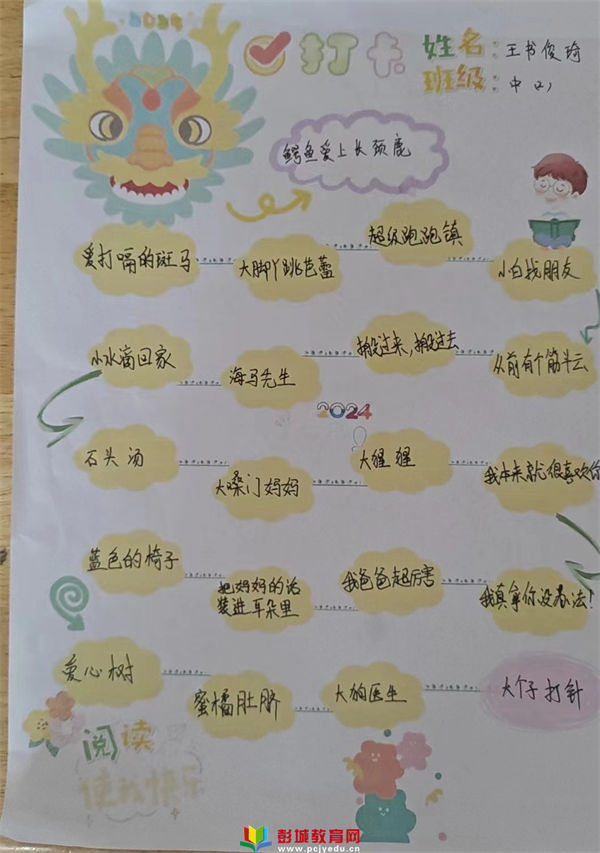 2024
打卡
姓名：王书俊琦
班级：中(2)
鳄鱼爱上长颈鹿
爱打嗝的斑马
大脚丫跳芭蕾
超级跑跑镇
小白找朋友
小水滴回家
海马先生
搬过来，搬过去
从前有个筋斗云
2024
石头汤
大嗓门妈妈
大猩猩
我本来就很喜欢你
蓝色的椅子
把妈妈的话
装进耳朵里
我爸爸超厉害
我真拿你没办法！
爱心树
蜜橘肚脐
大狗医生
大个子打针
阅读
使我快乐
彭城教育网
www.pcjyedu.cn